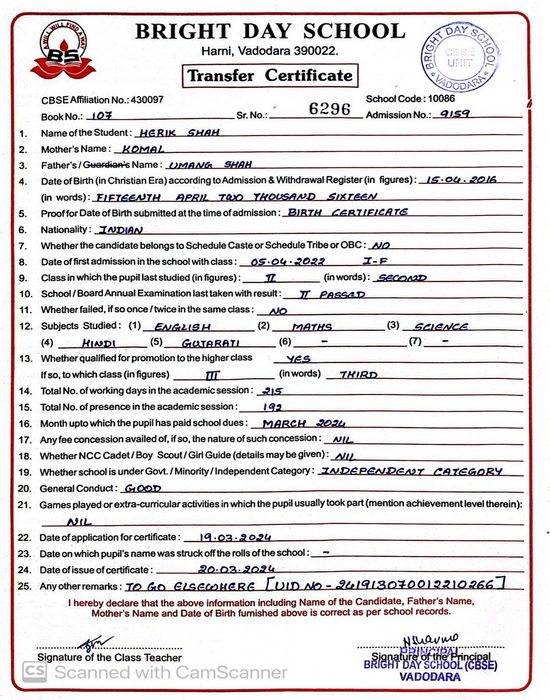 A WILL WILL FIND A WAY
BS
BRIGHT DAY SCHOOL
Harni, Vadodara 390022.
Transfer Certificate
BRIGHT DAY SCHOOL
CBSE
UNIT
* VADODARA *
CBSE Affiliation No.: 430097 School Code : 10086
Book No.: 107 Sr. No.: 6296 Admission No.: 9159
1. Name of the Student: HERIK SHAH
2. Mother's Name : KOMAL
3. Father's / Guardian's Name : UMANG SHAH
4. Date of Birth (in Christian Era) according to Admission & Withdrawal Register (in figures) : 15.04.2016
(in words) : FIFTEENTH APRIL TWO THOUSAND SIXTEEN
5. Proof for Date of Birth submitted at the time of admission : BIRTH CERTIFICATE
6. Nationality : INDIAN
7. Whether the candidate belongs to Schedule Caste or Schedule Tribe or OBC : NO
8. Date of first admission in the school with class : 05.04.2022 I-F
9. Class in which the pupil last studied (in figures) : II (in words) : SECOND
10. School / Board Annual Examination last taken with result : II PASSED
11. Whether failed, if so once / twice in the same class : NO
12. Subjects Studied : (1) ENGLISH (2) MATHS (3) SCIENCE
(4) HINDI (5) GUJARATI (6) - (7) -
13. Whether qualified for promotion to the higher class YES
If so, to which class (in figures) III (in words) THIRD
14. Total No. of working days in the academic session : 215
15. Total No. of presence in the academic session : 192
16. Month upto which the pupil has paid school dues : MARCH 2024
17. Any fee concession availed of, if so, the nature of such concession : NIL
18. Whether NCC Cadet / Boy Scout / Girl Guide (details may be given) : NIL
19. Whether school is under Govt. / Minority / Independent Category : INDEPENDENT CATEGORY
20. General Conduct : GOOD
21. Games played or extra-curricular activities in which the pupil usually took part (mention achievement level therein) :
NIL
22. Date of application for certificate : 19.03.2024
23. Date on which pupil's name was struck off the rolls of the school : -
24. Date of issue of certificate : 20.03.2024
25. Any other remarks : TO GO ELSEWHERE [UID NO - 241913070012210266]
I hereby declare that the above information including Name of the Candidate, Father's Name,
Mother's Name and Date of Birth furnished above is correct as per school records.
Signature of the Class Teacher Signature of the Principal
PRINCIPAL
BRIGHT DAY SCHOOL (CBSE)
VADODARA
CS Scanned with CamScanner